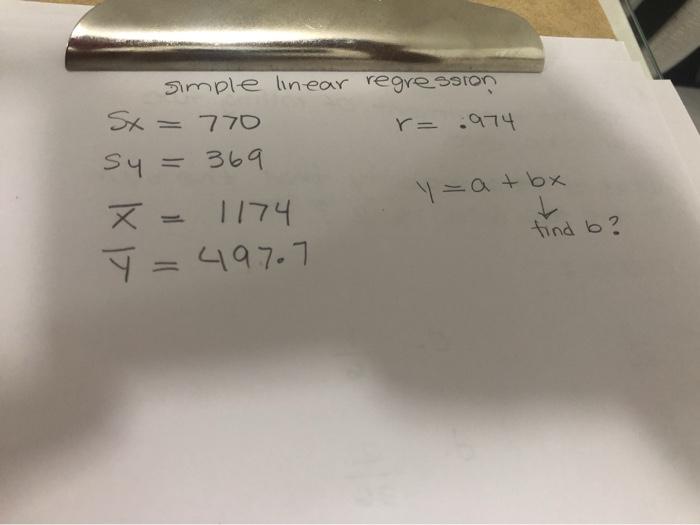 simple linear regression
Sx = 770
r = .974
Sy = 369
y = a + bx
x̅ = 1174
↓
find b?
y̅ = 497.7